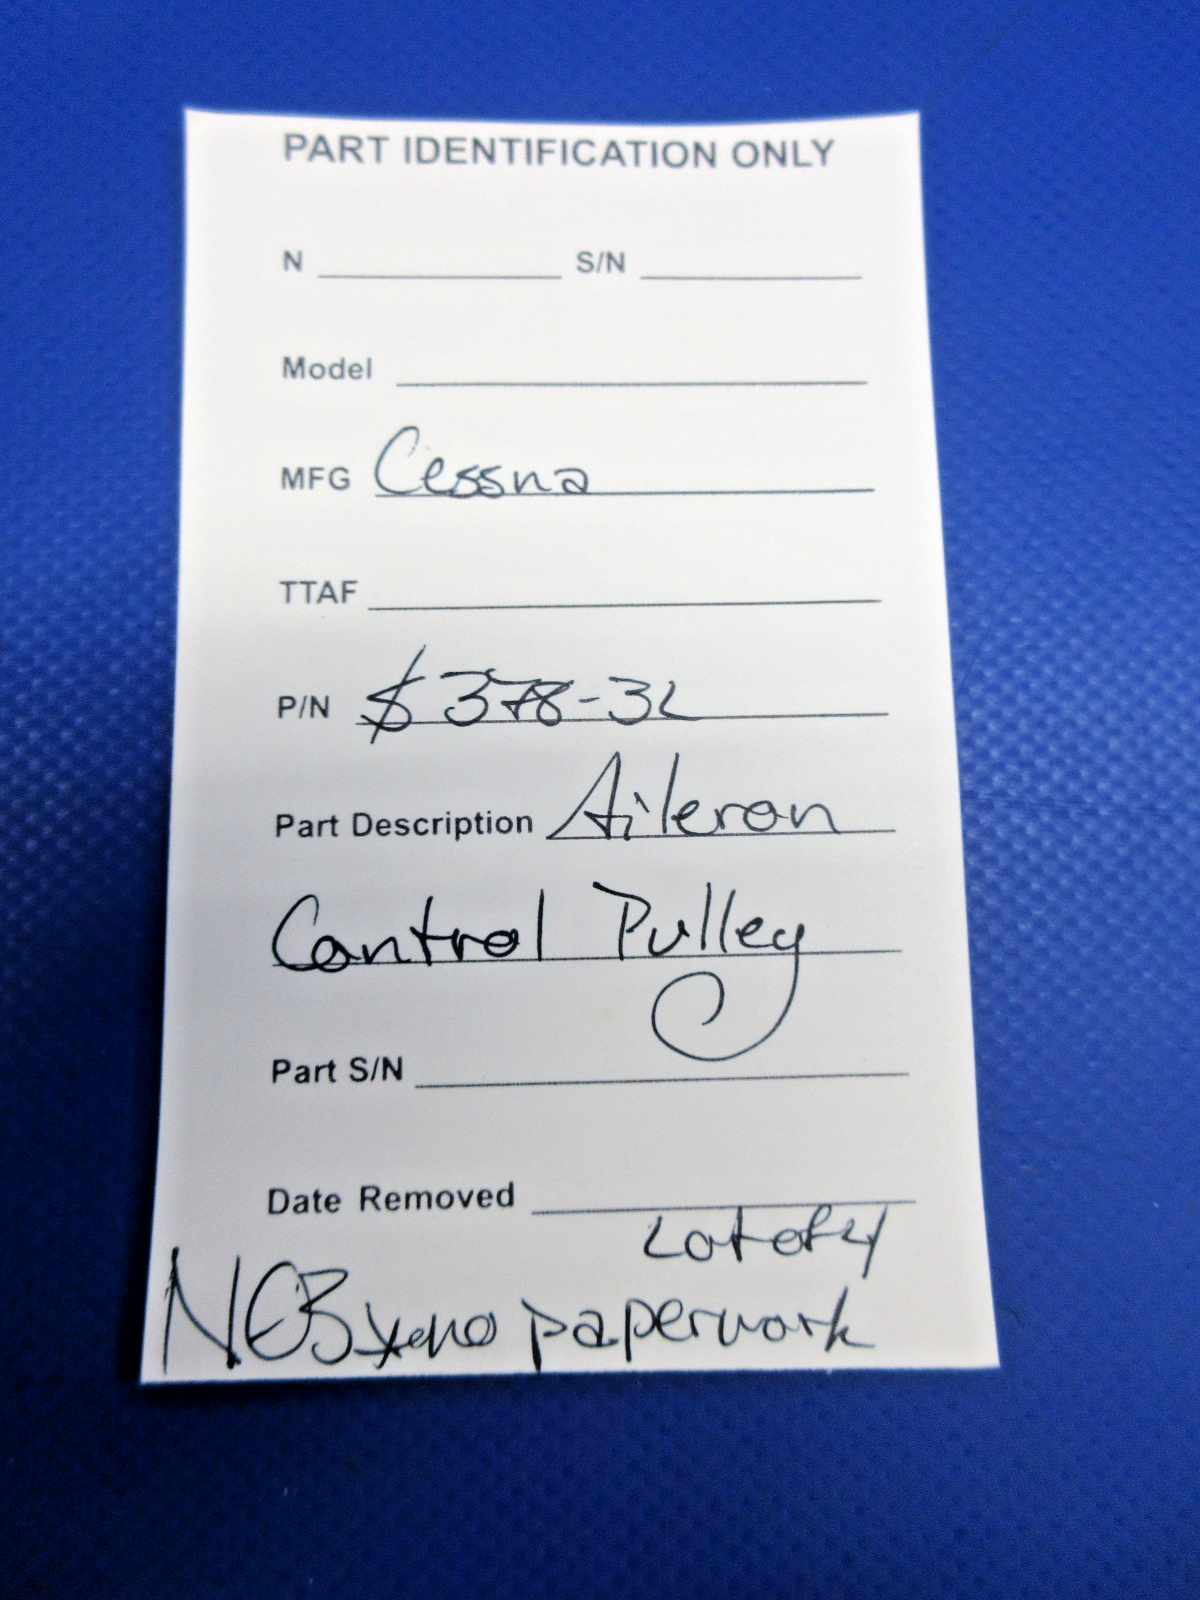 PART IDENTIFICATION ONLY
N S/N
Model
MFG Cessna
TTAF
P/N $378-3L
Part Description Aileron
Control Pulley
Part S/N
Date Removed
Lot of 4
no paperwork